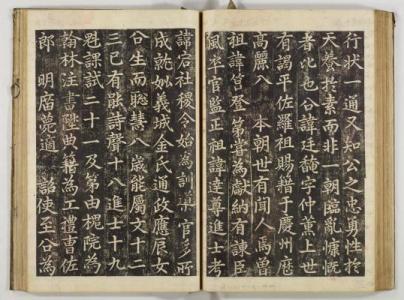 行状一通又知公之忠勇性於
天養於素而非一朝臨亂慷慨
者比也公諱廷馣字仲薰上世
有謁平佐羅祖賜籍于慶州歷
高麗入 本朝世有聞人高曾
祖諱管登 第嘗為獻納有諫臣
風卒官監正祖諱達尊進士考
諱宕社稷令始為訓導官多所
成就妣義城金氏通政應辰女
公生而聰慧八歲能屬文十二
三已有能詩聲十八進士十九
魁課試二十一及第由槐院為
翰林注書陞典籍為工禮曹佐
郎 明廟薨適 詔使至公為